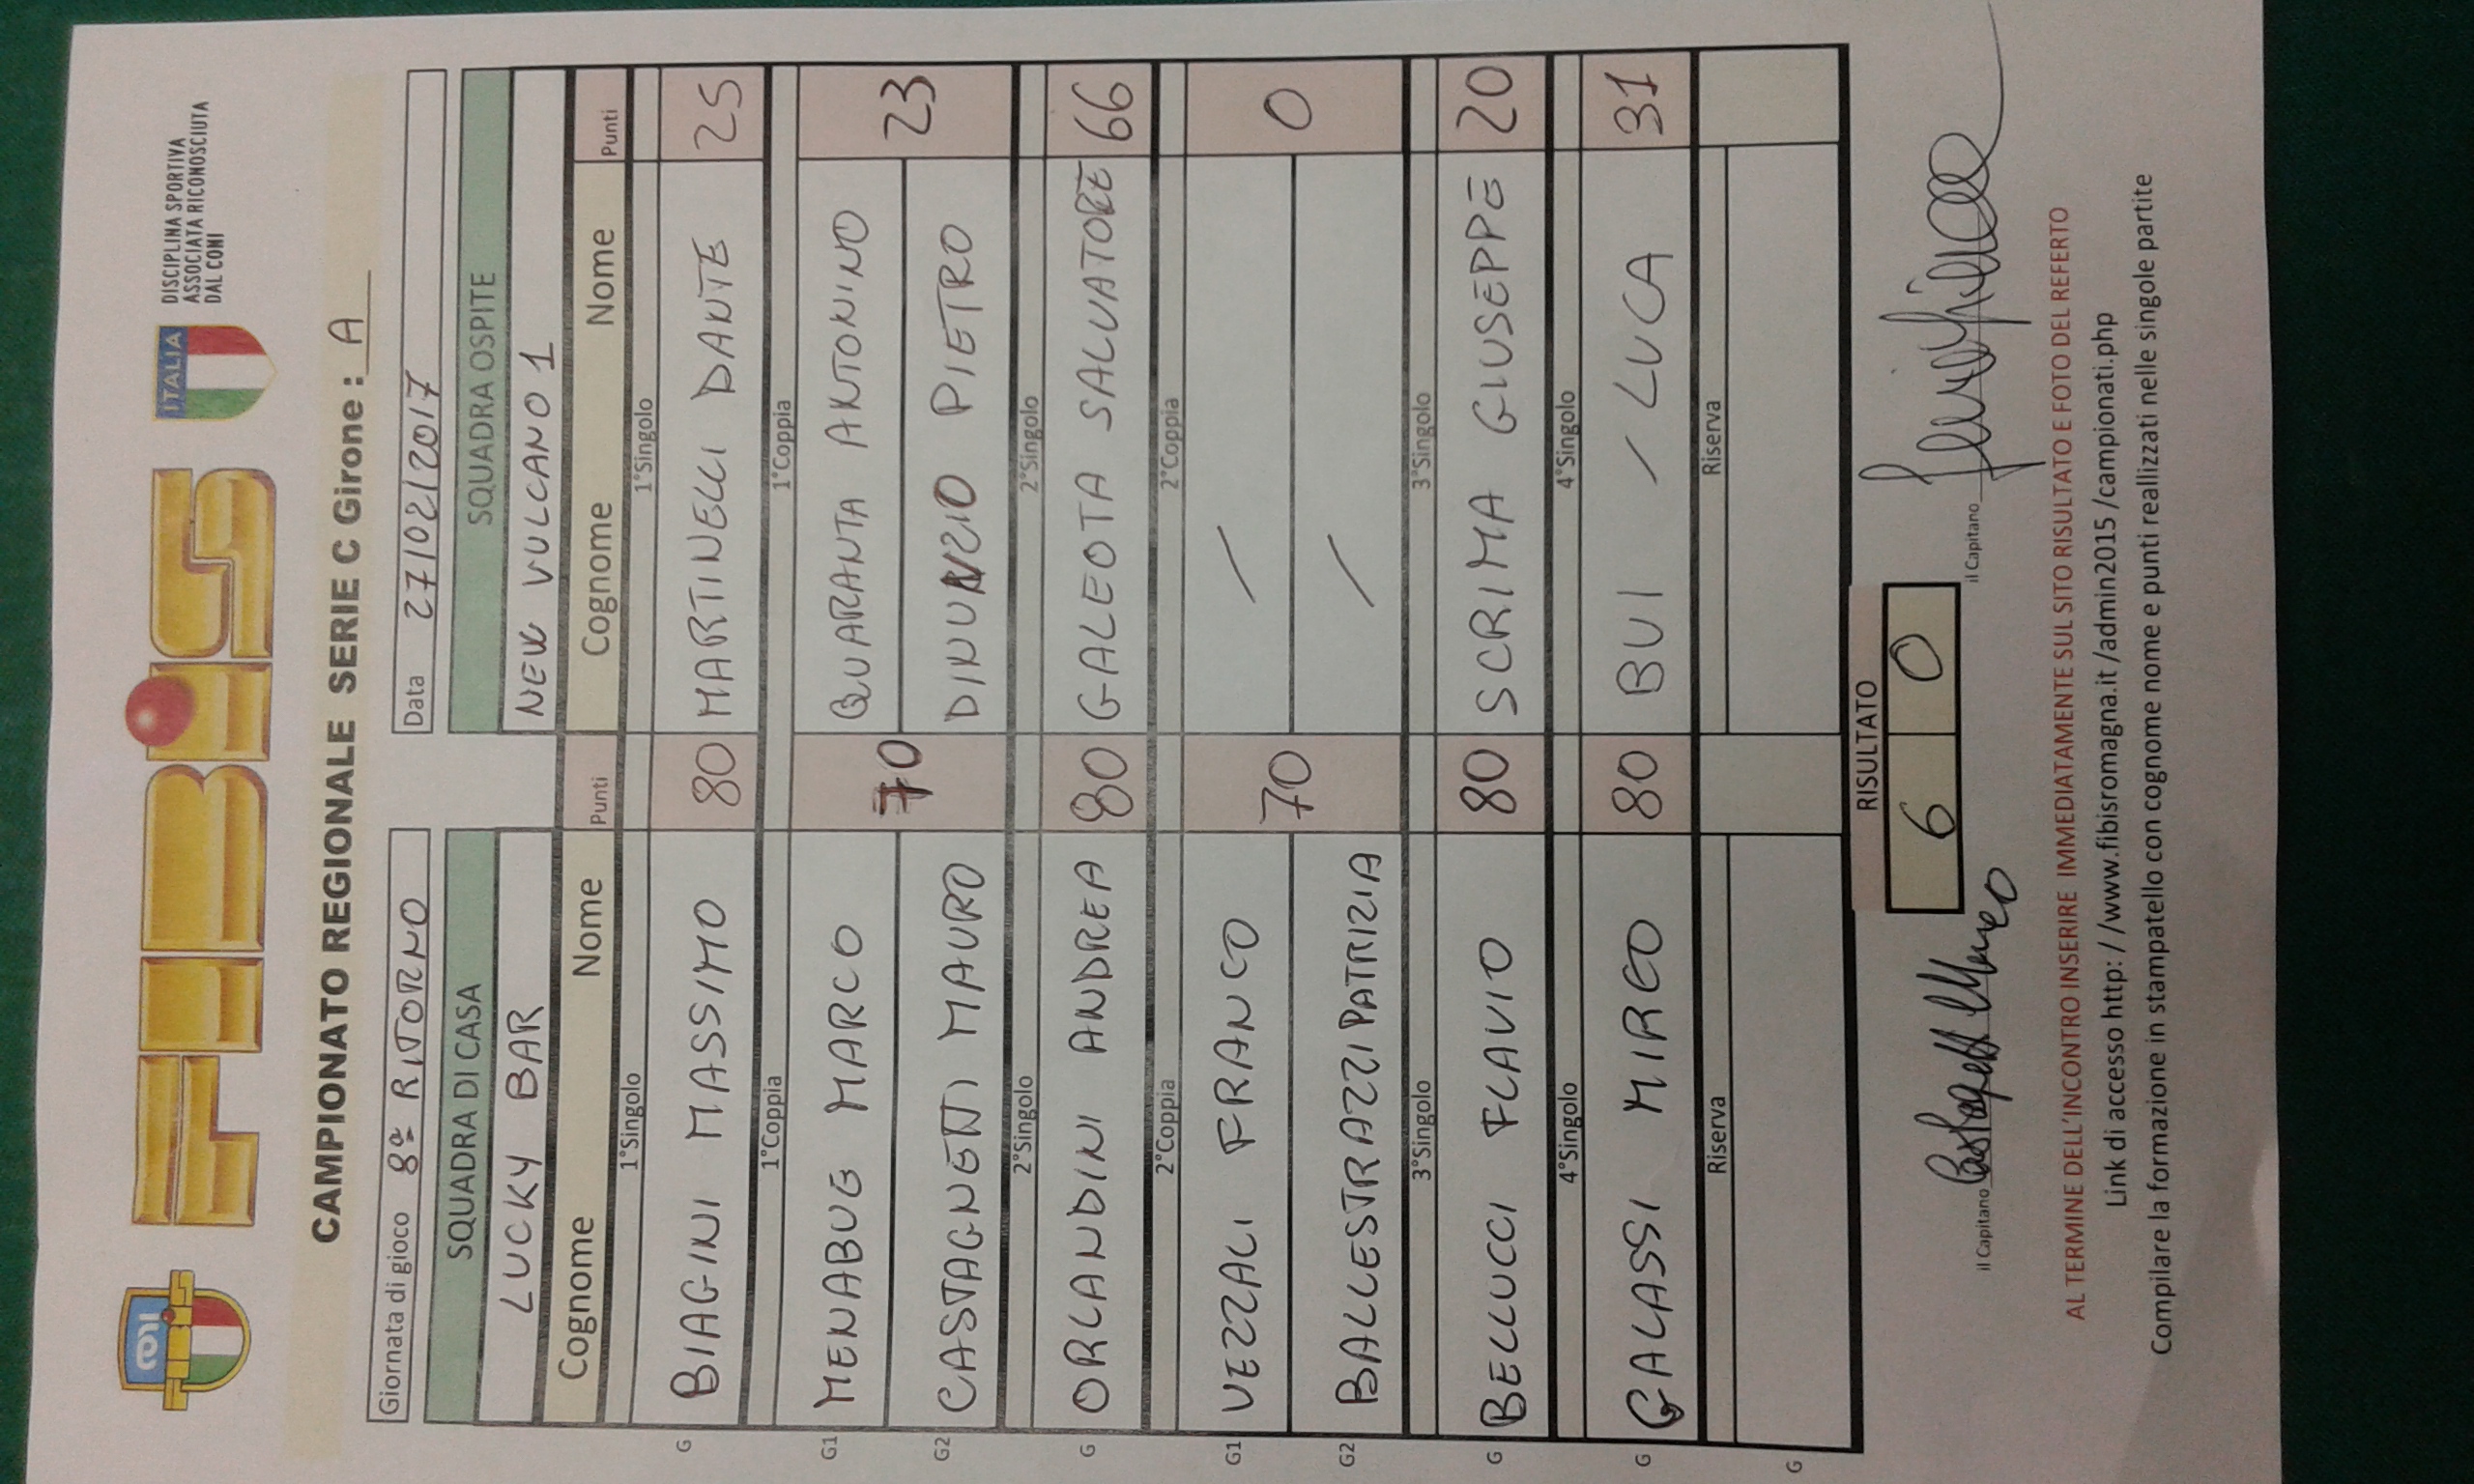 FIBiS
ITALIA
DISCIPLINA SPORTIVA
ASSOCIATA RICONOSCIUTA
DAL CONI
CAMPIONATO REGIONALE SERIE C Girone : A
Giornata di gioco 8ª RITORNO Data 27/02/2017
SQUADRA DI CASA SQUADRA OSPITE
LUCKY BAR NEW VULCANO 1
Cognome Nome Punti Cognome Nome Punti
1°Singolo 1°Singolo
G BIAGINI MASSIMO 80 MARTINELLI DANTE 25
1°Coppia 1°Coppia
G1 MENABUE MARCO QUARANTA ANTONINO
70 23
G2 CASTAGNETTI MAURO DINUNZIO PIETRO
2°Singolo 2°Singolo
G ORLANDINI ANDREA 80 GALEOTA SALVATORE 66
2°Coppia 2°Coppia
G1 VEZZALI FRANCO /
70 0
G2 BALLESTRAZZI PATRIZIA /
3°Singolo 3°Singolo
G BELLUCCI FLAVIO 80 SCRIMA GIUSEPPE 20
4°Singolo 4°Singolo
G GALASSI MIRCO 80 BUI / LUCA 31
Riserva Riserva
G
RISULTATO
6 0
il Capitano il Capitano
AL TERMINE DELL'INCONTRO INSERIRE IMMEDIATAMENTE SUL SITO RISULTATO E FOTO DEL REFERTO
Link di accesso http: / /www.fibisromagna.it /admin2015 /campionati.php
Compilare la formazione in stampatello con cognome nome e punti reallizzati nelle singole partite